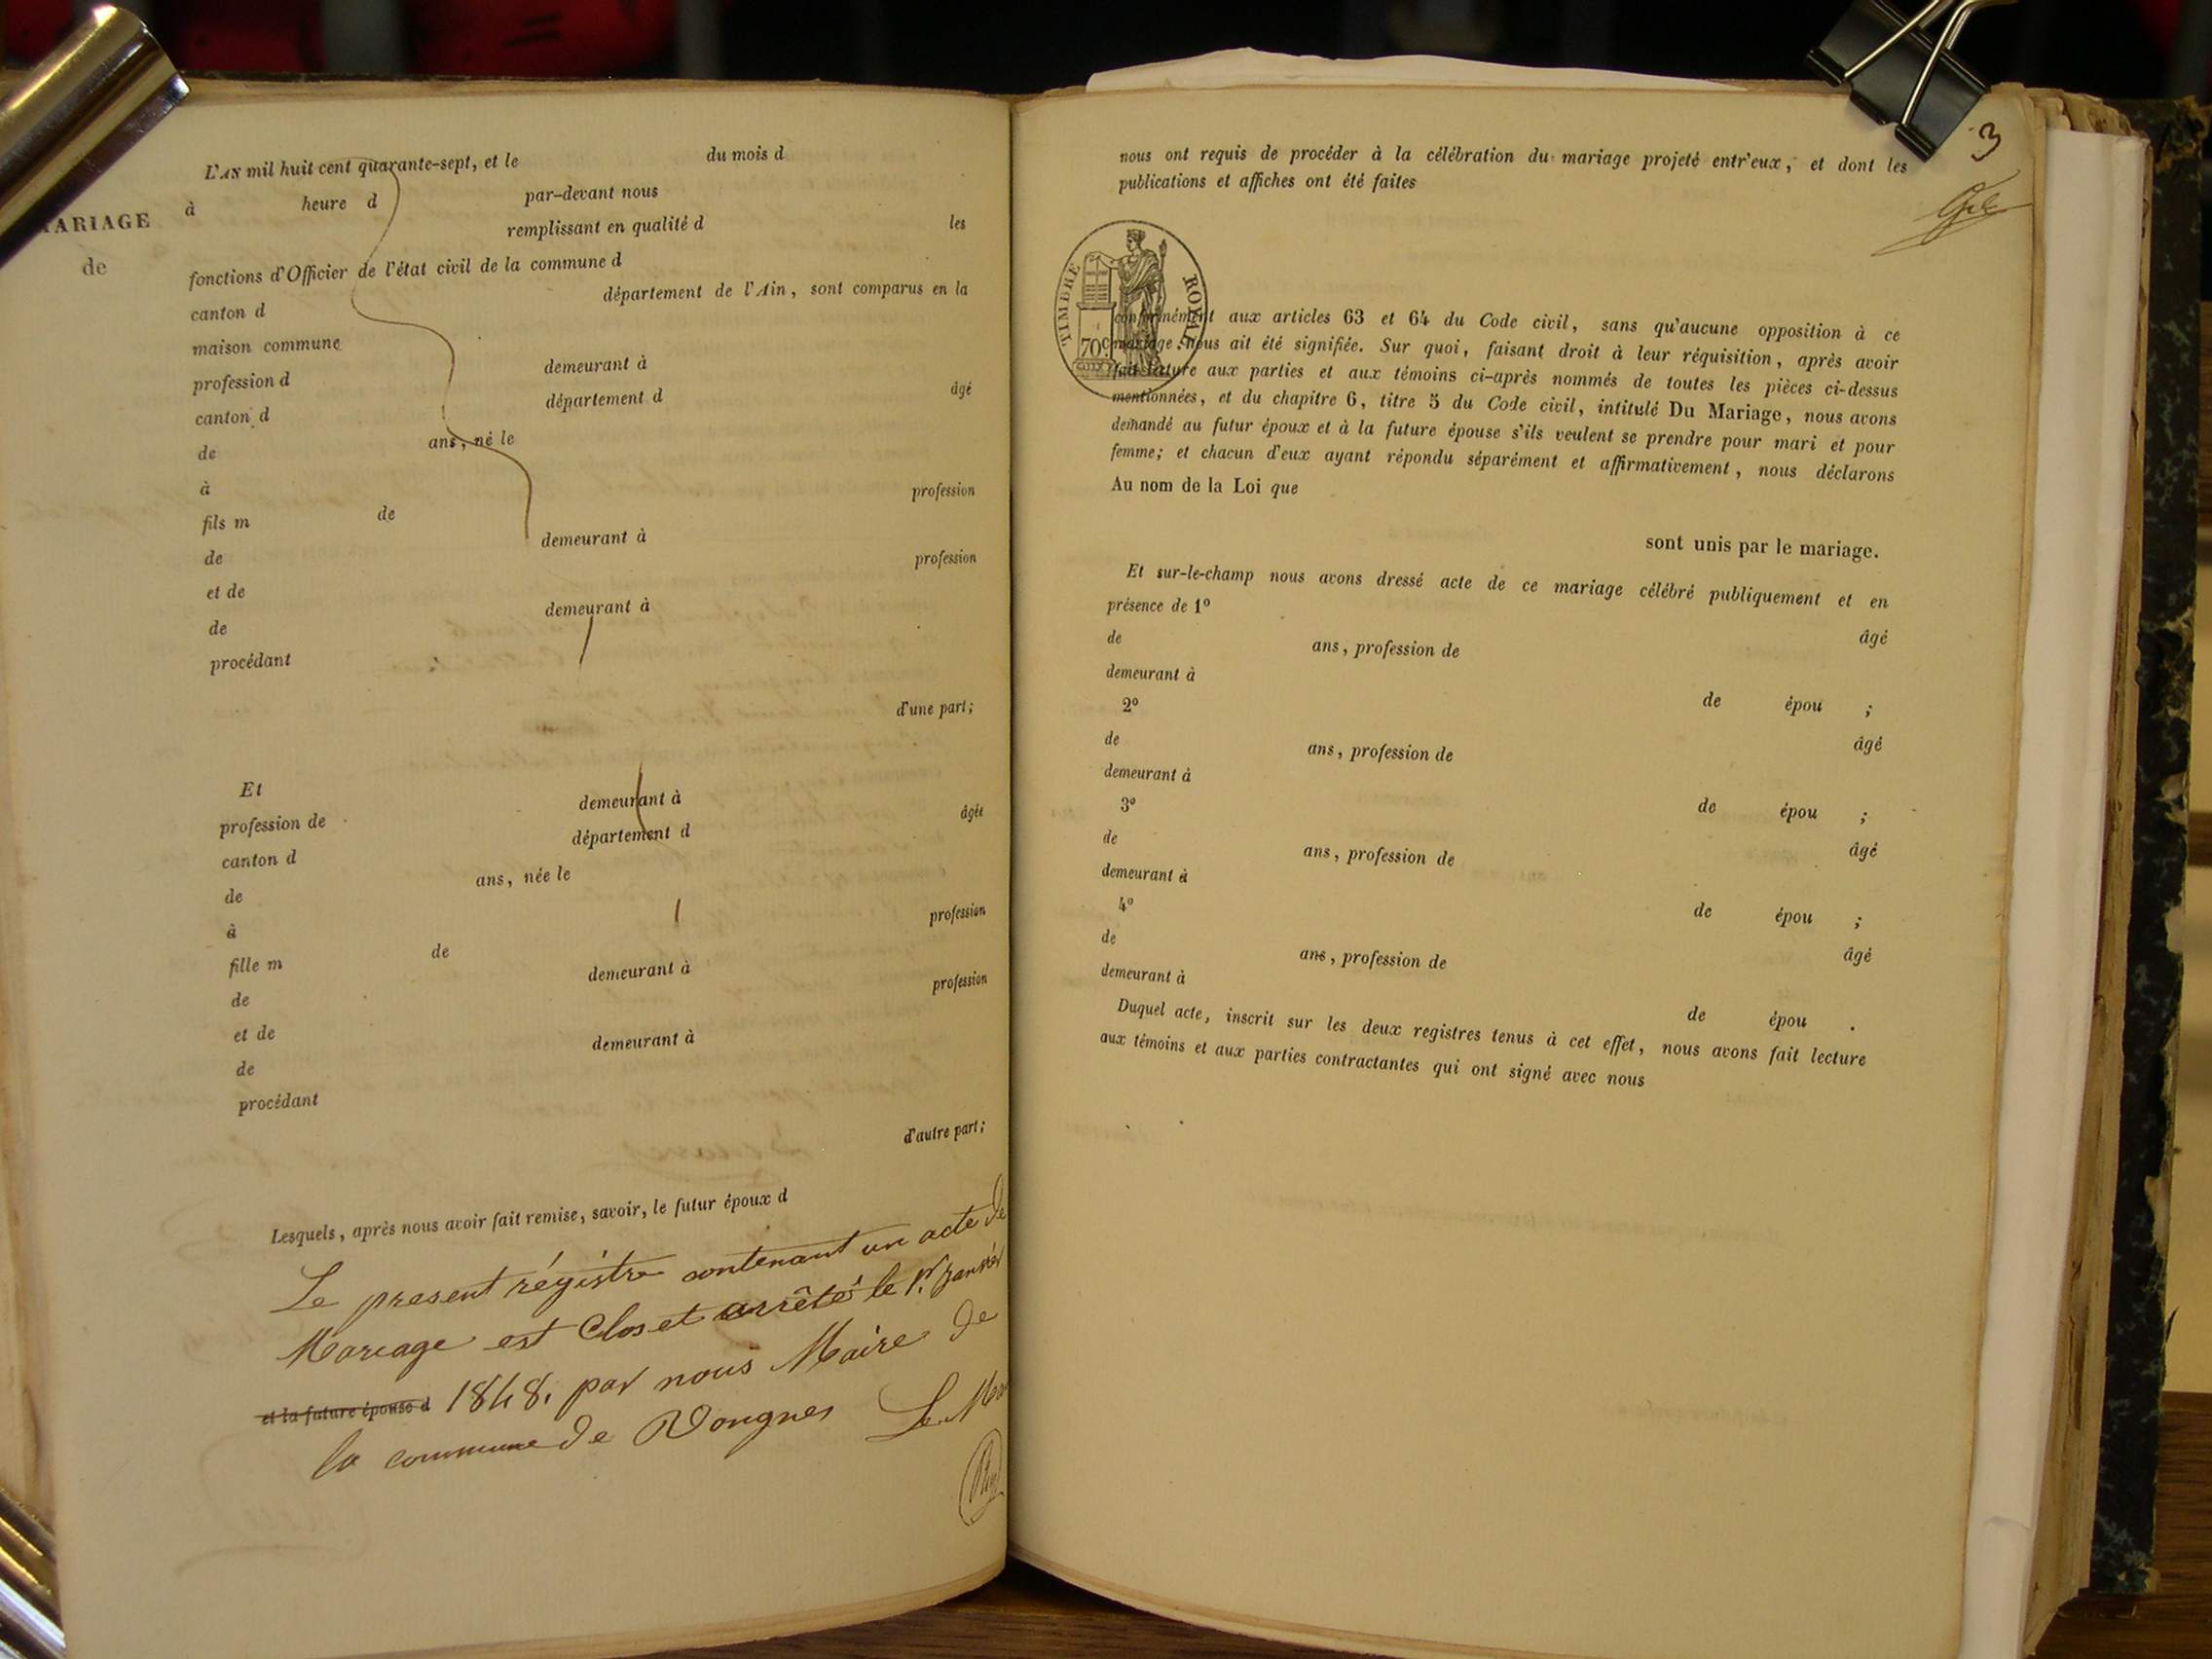 MARIAGE
de
L'AN mil huit cent quarante-sept, et le du mois d
à heure d par-devant nous
remplissant en qualité d les
fonctions d'Officier de l'état civil de la commune d
canton d département de l'Ain, sont comparus en la
maison commune
profession d demeurant à
canton d département d âgé
de ans, né le
à
fils m de profession
de demeurant à
et de profession
de demeurant à
procédant
d'une part;
Et
profession de demeurant à
canton d département d âgée
de ans, née le
à
fille m de profession
de demeurant à
et de profession
de demeurant à
procédant
d'autre part;
Lesquels, après nous avoir fait remise, savoir, le futur époux d
Le present régistre contenant un acte de
Mariage est Clos et arrêté le 1.r Janvier
et la future épouse d 1848. par nous Maire de
la commune de Vongnes Le
3
nous ont requis de procéder à la célébration du mariage projeté entr'eux, et dont les
publications et affiches ont été faites
TIMBRE ROYAL
70c
conformément aux articles 63 et 64 du Code civil, sans qu'aucune opposition à ce
mariage nous ait été signifiée. Sur quoi, faisant droit à leur réquisition, après avoir
fait lecture aux parties et aux témoins ci-après nommés de toutes les pièces ci-dessus
mentionnées, et du chapitre 6, titre 5 du Code civil, intitulé Du Mariage, nous avons
demandé au futur époux et à la future épouse s'ils veulent se prendre pour mari et pour
femme; et chacun d'eux ayant répondu séparément et affirmativement, nous déclarons
Au nom de la Loi que
sont unis par le mariage.
Et sur-le-champ nous avons dressé acte de ce mariage célébré publiquement et en
présence de 1º
de ans, profession de âgé
demeurant à
2º de épou ;
de ans, profession de âgé
demeurant à
3º de épou ;
de ans, profession de âgé
demeurant à
4º de épou ;
de ans, profession de âgé
demeurant à
de épou .
Duquel acte, inscrit sur les deux registres tenus à cet effet, nous avons fait lecture
aux témoins et aux parties contractantes qui ont signé avec nous